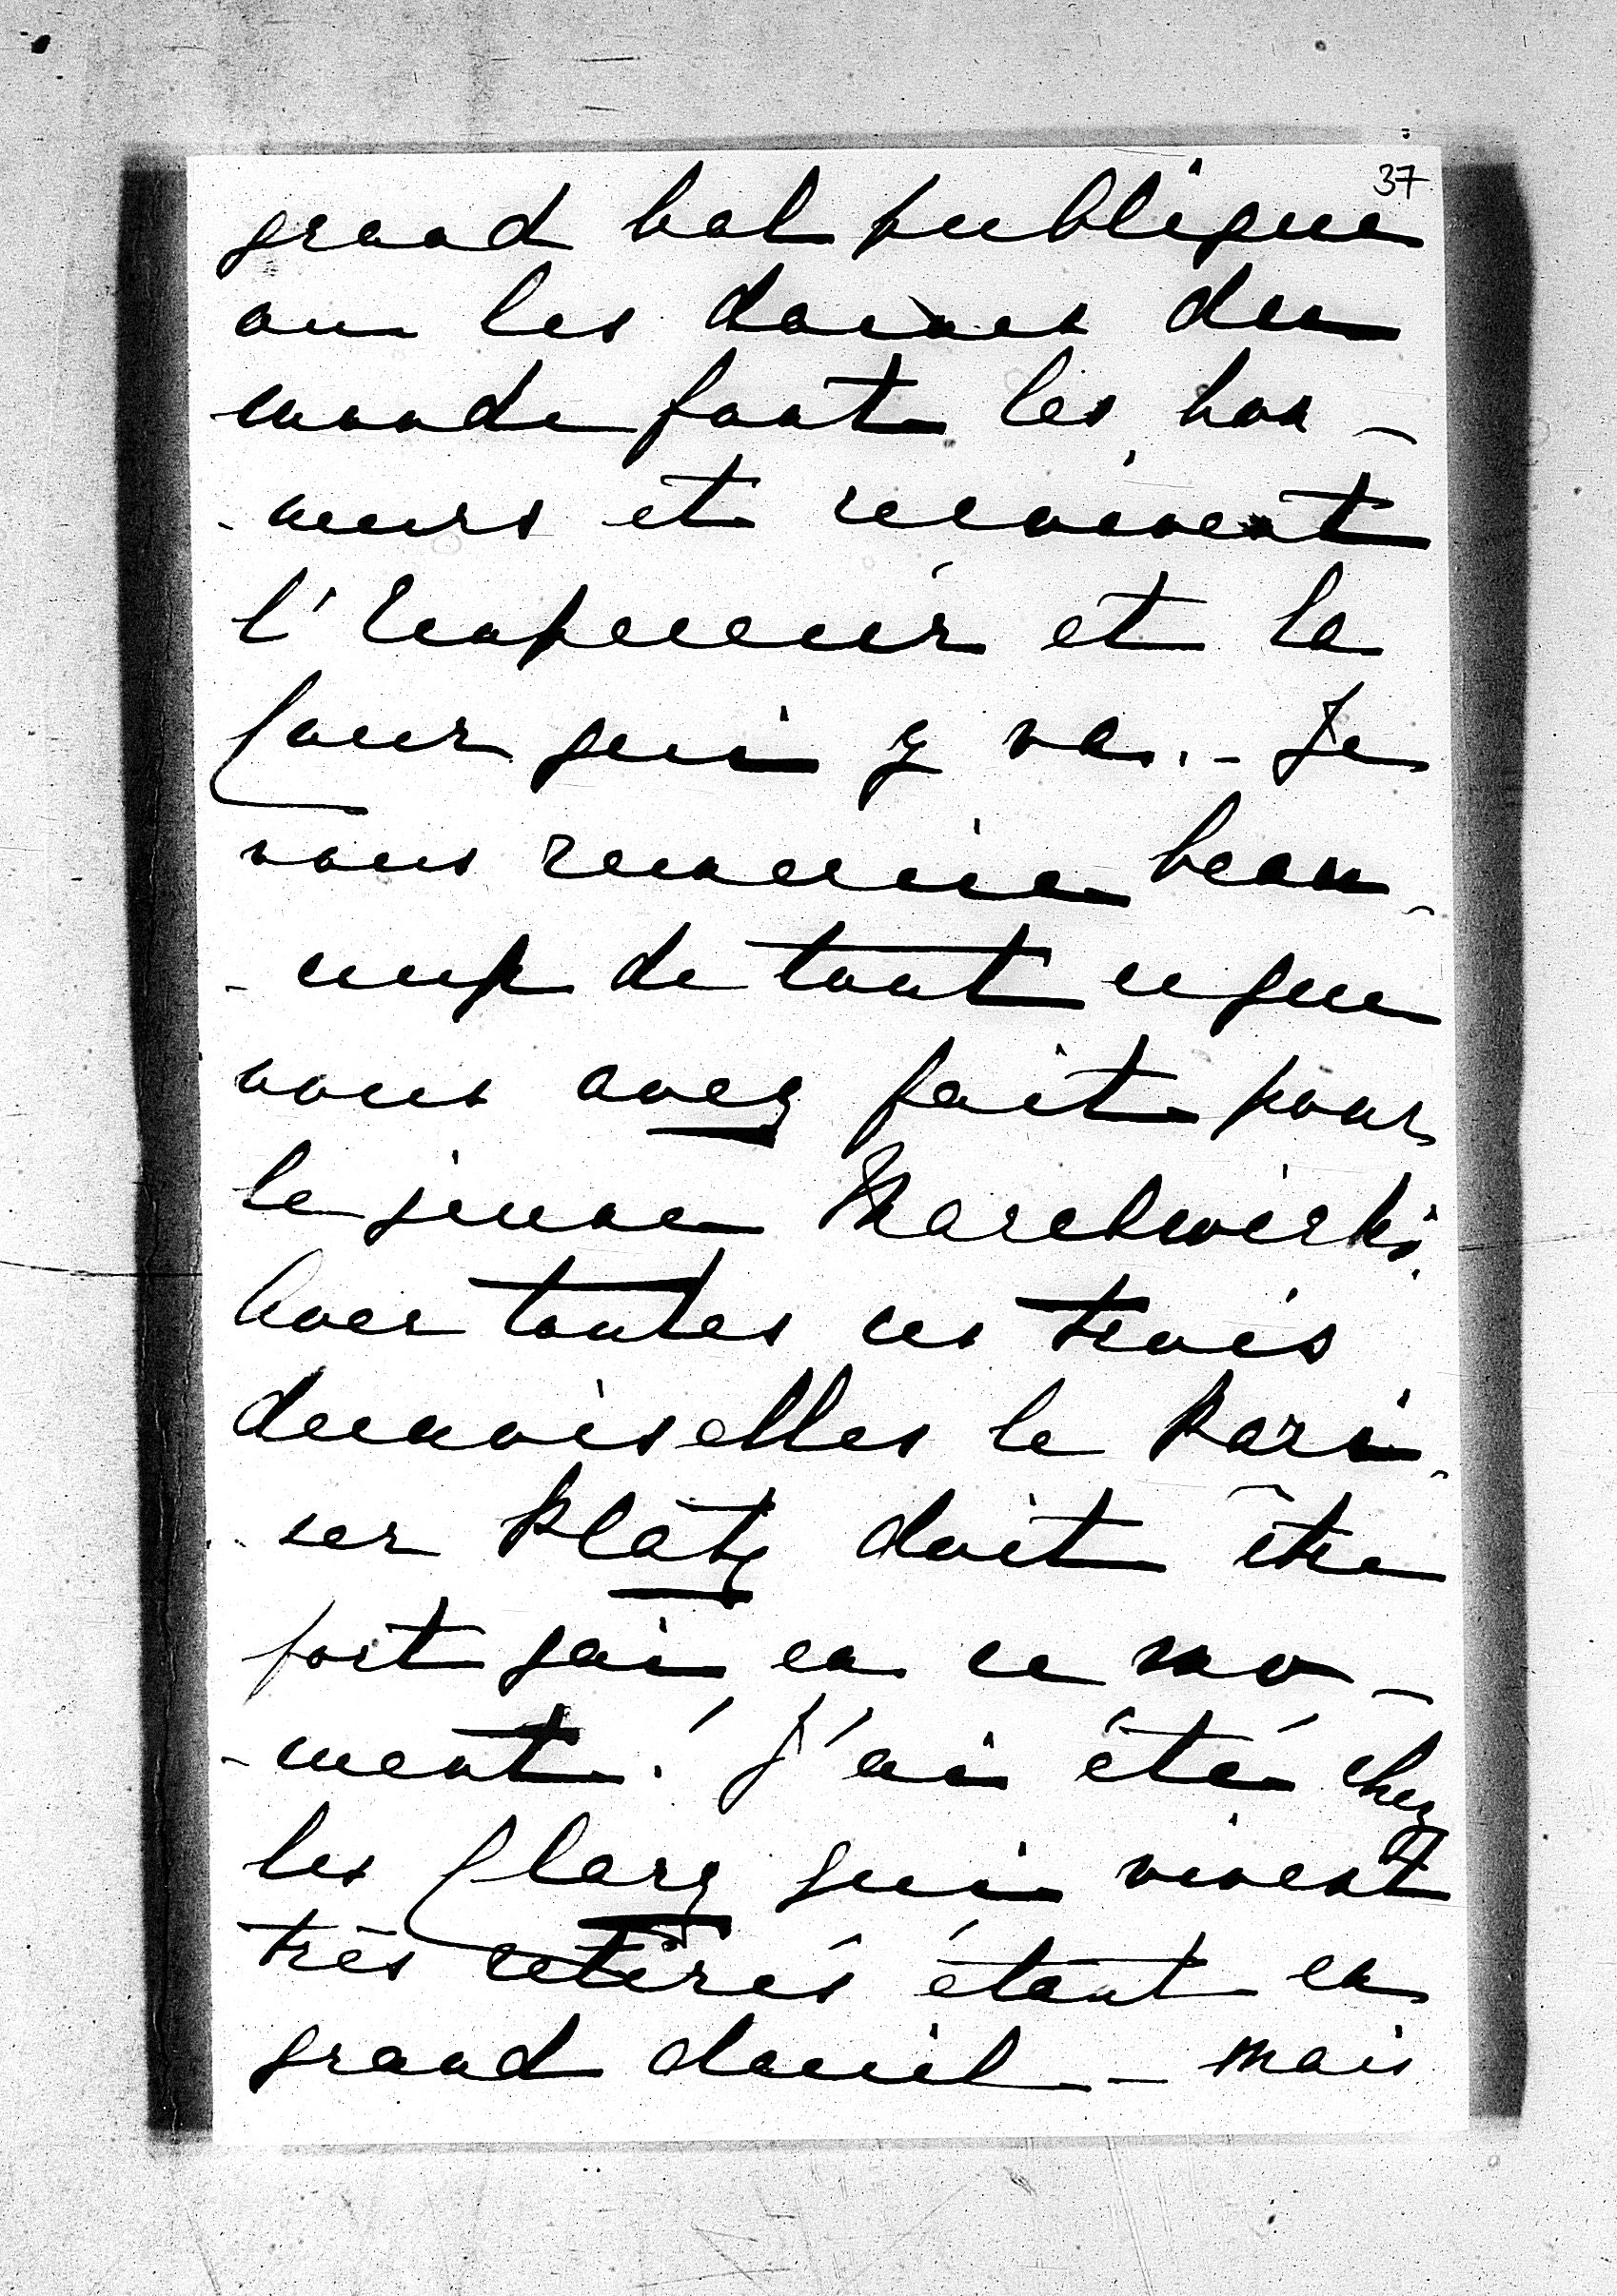 37
grand bal publique
ou les dames du
monde font les hon-
-neurs et reçoivent
l'Empereur et la
Cour qui y va. - Je
vous remercie beau-
-coup de tout ce que
vous avez fait pour
le jeune
Avec toutes ces trois
demoiselles le Pari-
-ser Platz doit être
fort gai en ce mo-
-ment! J'ai été chez
les Clary qui vivent
très retirés étant en
grand deuil - mais